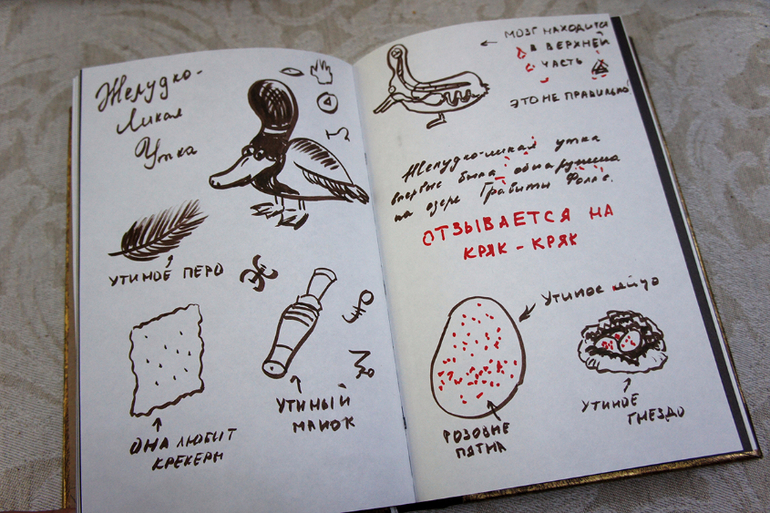 Желудко-
Ликая
Утка
УТИНОЕ ПЕРО
ОНА ЛЮБИТ
КРЕКЕРЫ
УТИНЫЙ
МАНОК
МОЗГ НАХОДИТСЯ
В ВЕРХНЕЙ
ЧАСТЬ
ЭТО НЕ ПРАВИЛЬНО!
Желудко-ликая утка
впервые была обнаружина
на озере Гравити Фолз.
ОТЗЫВАЕТСЯ НА
КРЯК-КРЯК
УТИНОЕ ЯЙЦО
РОЗОВЫЕ
ПЯТНА
УТИНОЕ
ГНЕЗДО